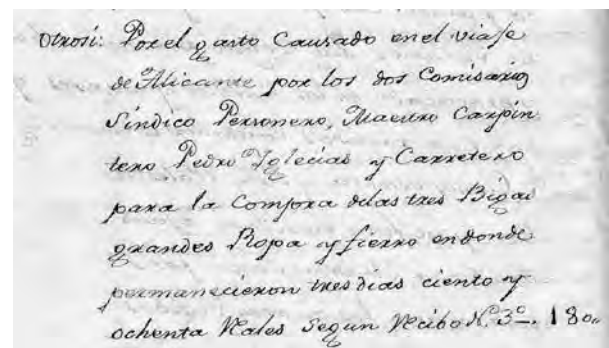 Otrosi: Por el gasto Causado en el viaje
de Alicante por los dos Comisarios
Sindico Personero, Maestro Carpin
tero Pedro Iglecias y Carretero
para la Compora delas tres Bigas
grandes Ropa y fierro endonde
permanecieron tres dias ciento y
ochenta Reales Segun Recibo N.º 3º. 180,,